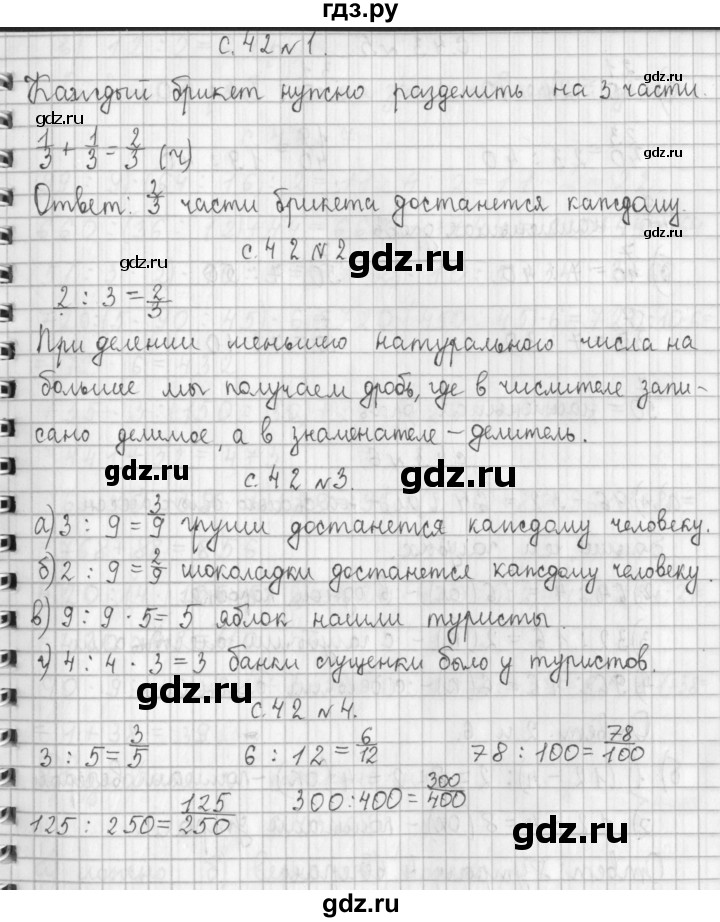 гдз.ру
с. 42 №1.
gdz.ru
Каждый брикет нужно разделить на 3 части.
gdz.ru
1/3 + 1/3 = 2/3 (ч)
gdz.ru
Ответ: 2/3 части брикета достанется каждому.
gdz.ru
с. 42 №2
gdz.ru
gdz.ru
2 : 3 = 2/3
При делении меньшего натурального числа на
большие мы получаем дробь, где в числителе запи-
сано делимое, а в знаменателе – делитель.
gdz.ru
с. 42 №3.
gdz.ru
а) 3 : 9 = 3/9 груши достанется каждому человеку.
б) 2 : 9 = 2/9 шоколадки достанется каждому человеку.
в) 9 : 9 · 5 = 5 яблок нашли туристы.
г) 4 : 4 · 3 = 3 банки сгущенки было у туристов.
gdz.ru
с. 42 №4.
3 : 5 = 3/5 6 : 12 = 6/12 78 : 100 = 78/100
125 : 250 = 125/250 300 : 400 = 300/400
gdz.ru
gdz.ru